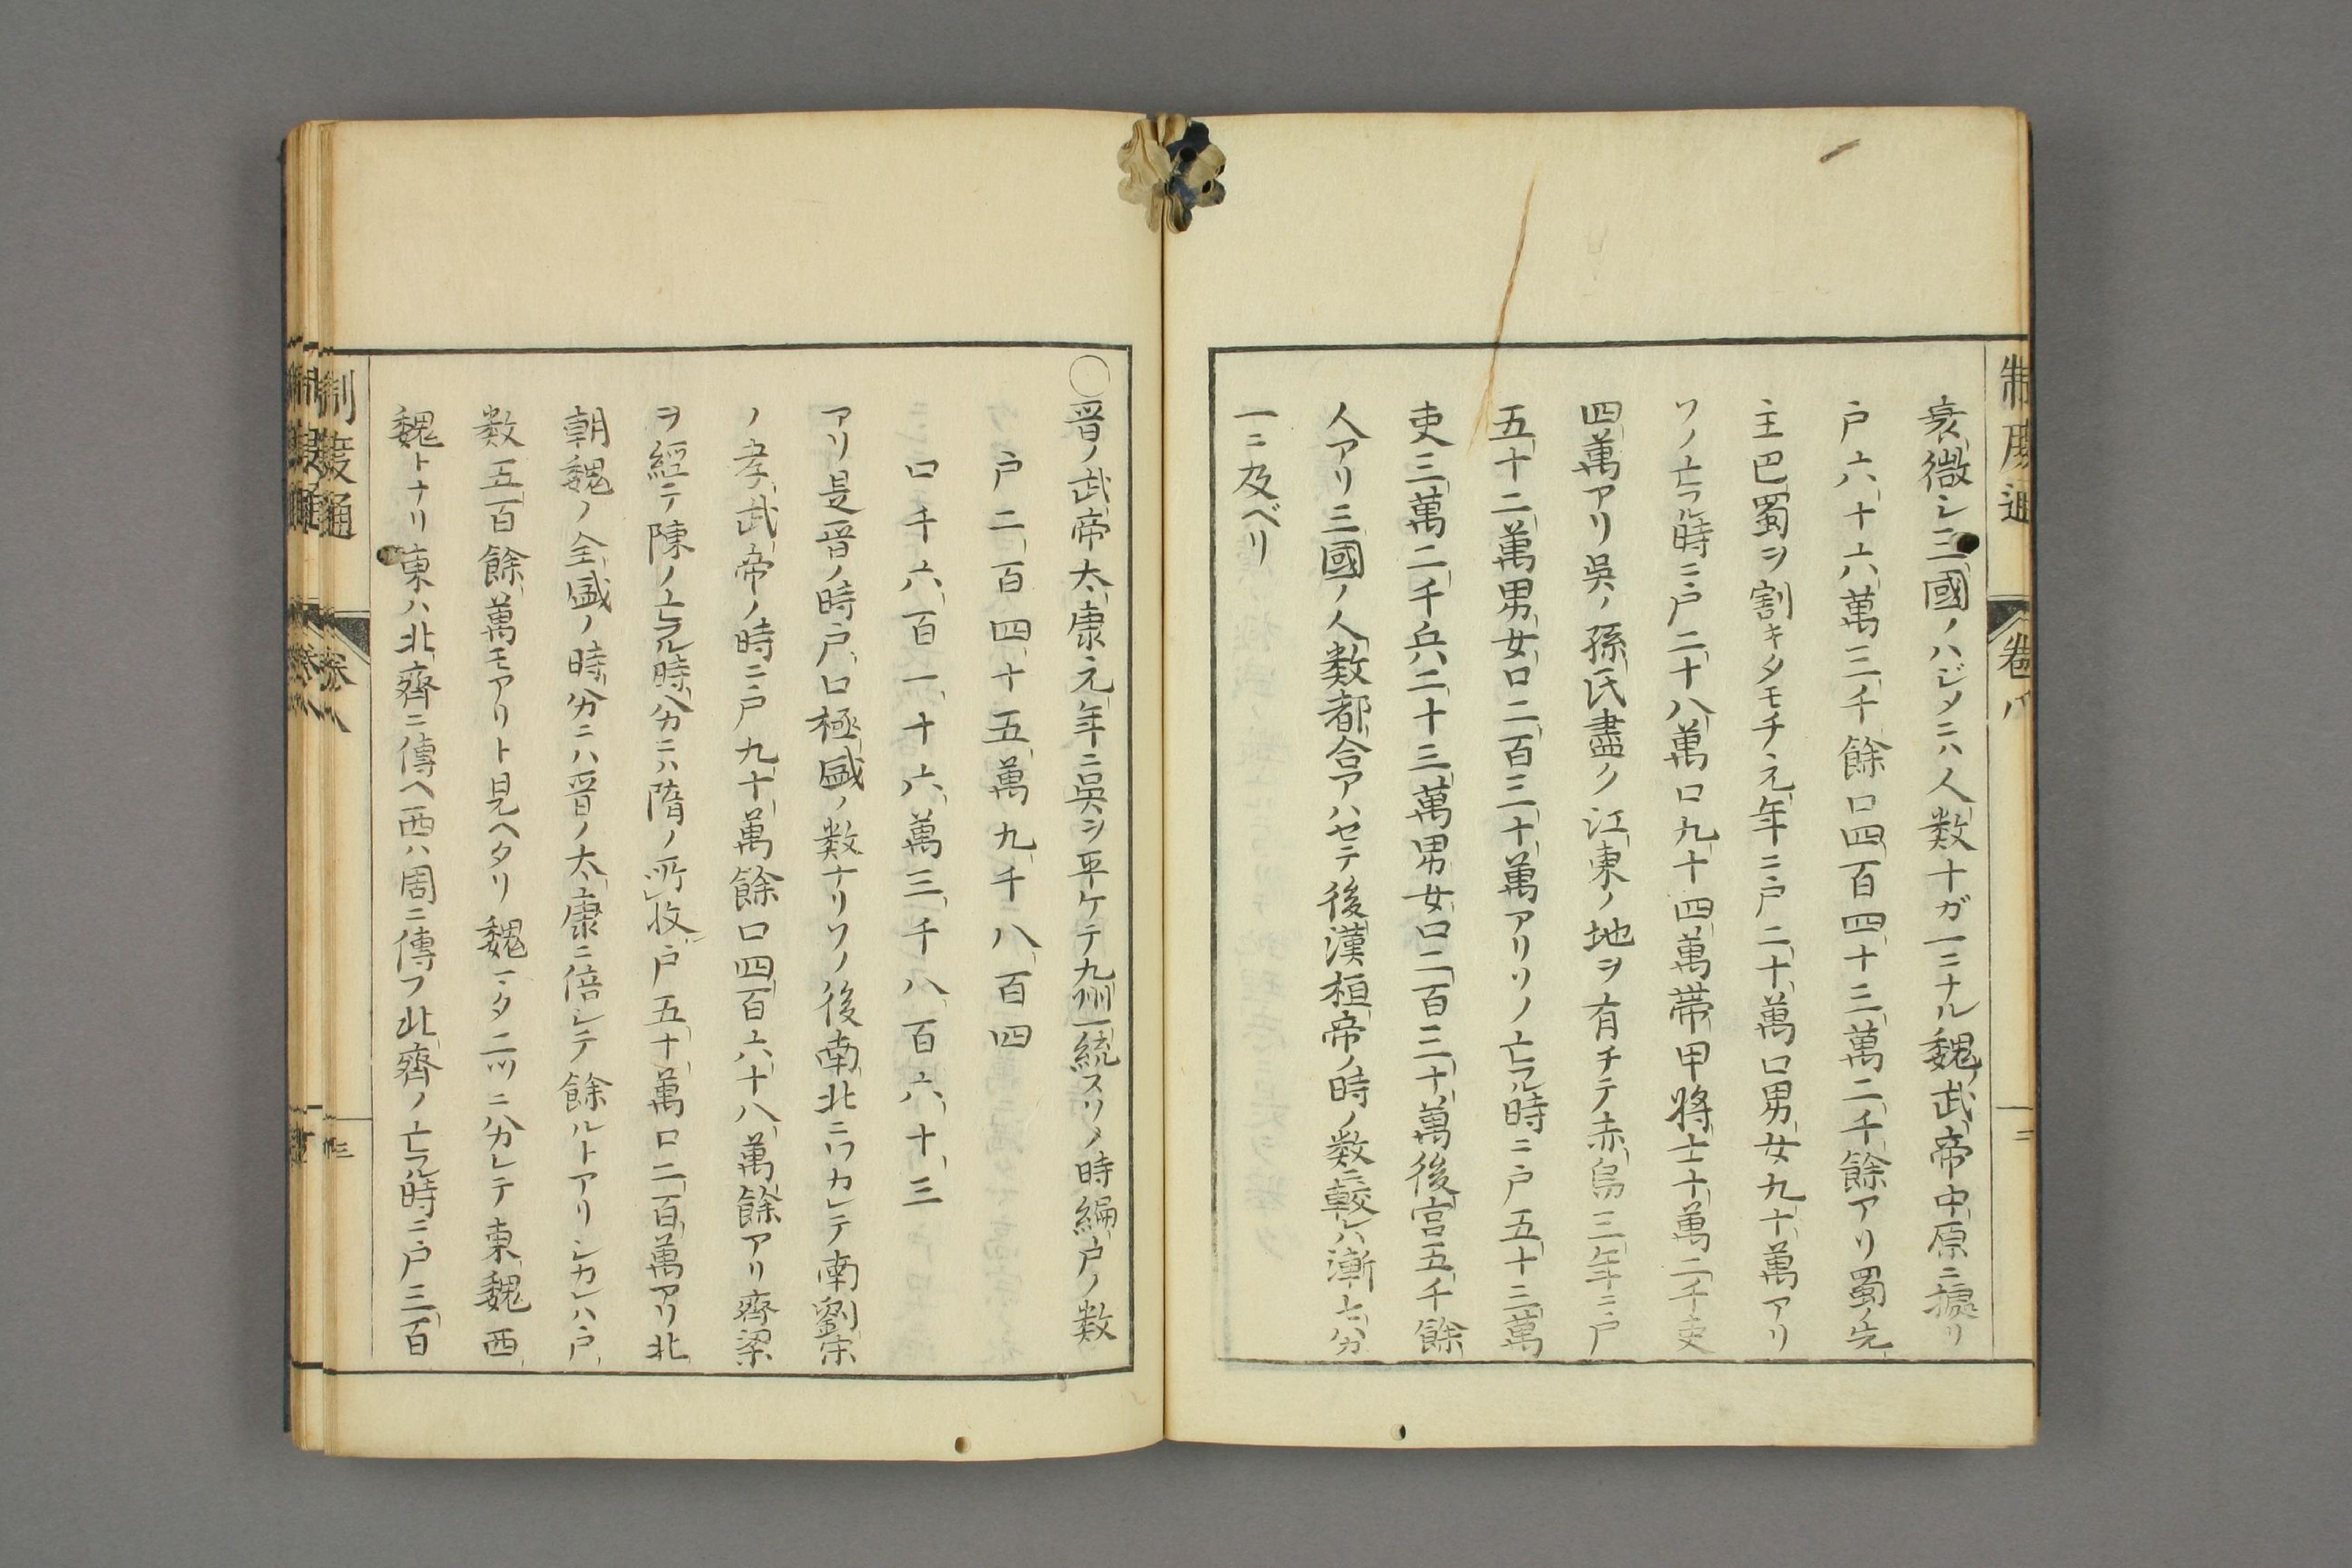 制度通
卷八
衰微シ三國ノハジメニハ人数十ガ一ニナル魏ノ武帝中原ニ據リ
戸六十六萬三千餘口四百四十三萬二千餘アリ蜀ノ先
主巴蜀ヲ割キタモチ元年ニ戸二十萬口男女九十萬アリ
ソノ亡フル時ニ戸二十八萬口九十四萬帯甲将士十萬二千吏
四萬アリ吳ノ孫氏盡ク江東ノ地ヲ有チテ赤烏三年ニ戸
五十二萬男女口二百三十萬アリソノ亡フル時ニ戸五十三萬
吏三萬二千兵二十三萬男女口二百三十萬後宮五千餘
人アリ三國ノ人数都合アハセテ後漢桓帝ノ時ノ数ニ較レハ漸七分
一ニ及ベリ
〇晋ノ武帝太康元年ニ吳ヲ平ケテ九州一統スソノ時編戸ノ数
戸二百四十五萬九千八百四
口千六百一十六萬三千八百六十三
アリ是晋ノ時戸口極盛ノ数ナリソノ後南北ニワカレテ南劉宋
ノ孝武帝ノ時ニ戸九十萬餘口四百六十八萬餘アリ齊梁
ヲ經テ陳ノ亡フル時分ニハ隋ノ所收戸五十萬口二百萬アリ北
朝魏ノ全盛ノ時分ニハ晋ノ太康ニ倍シテ餘ルトアリシカレハ戸
数五百餘萬モアリト見ヘタリ魏マタ二ツニ分カレテ東魏西
魏トナリ東ハ北齊ニ傳ヘ西ハ周ニ傳フ北齊ノ亡フル時ニ戸三百
制度通
卷八